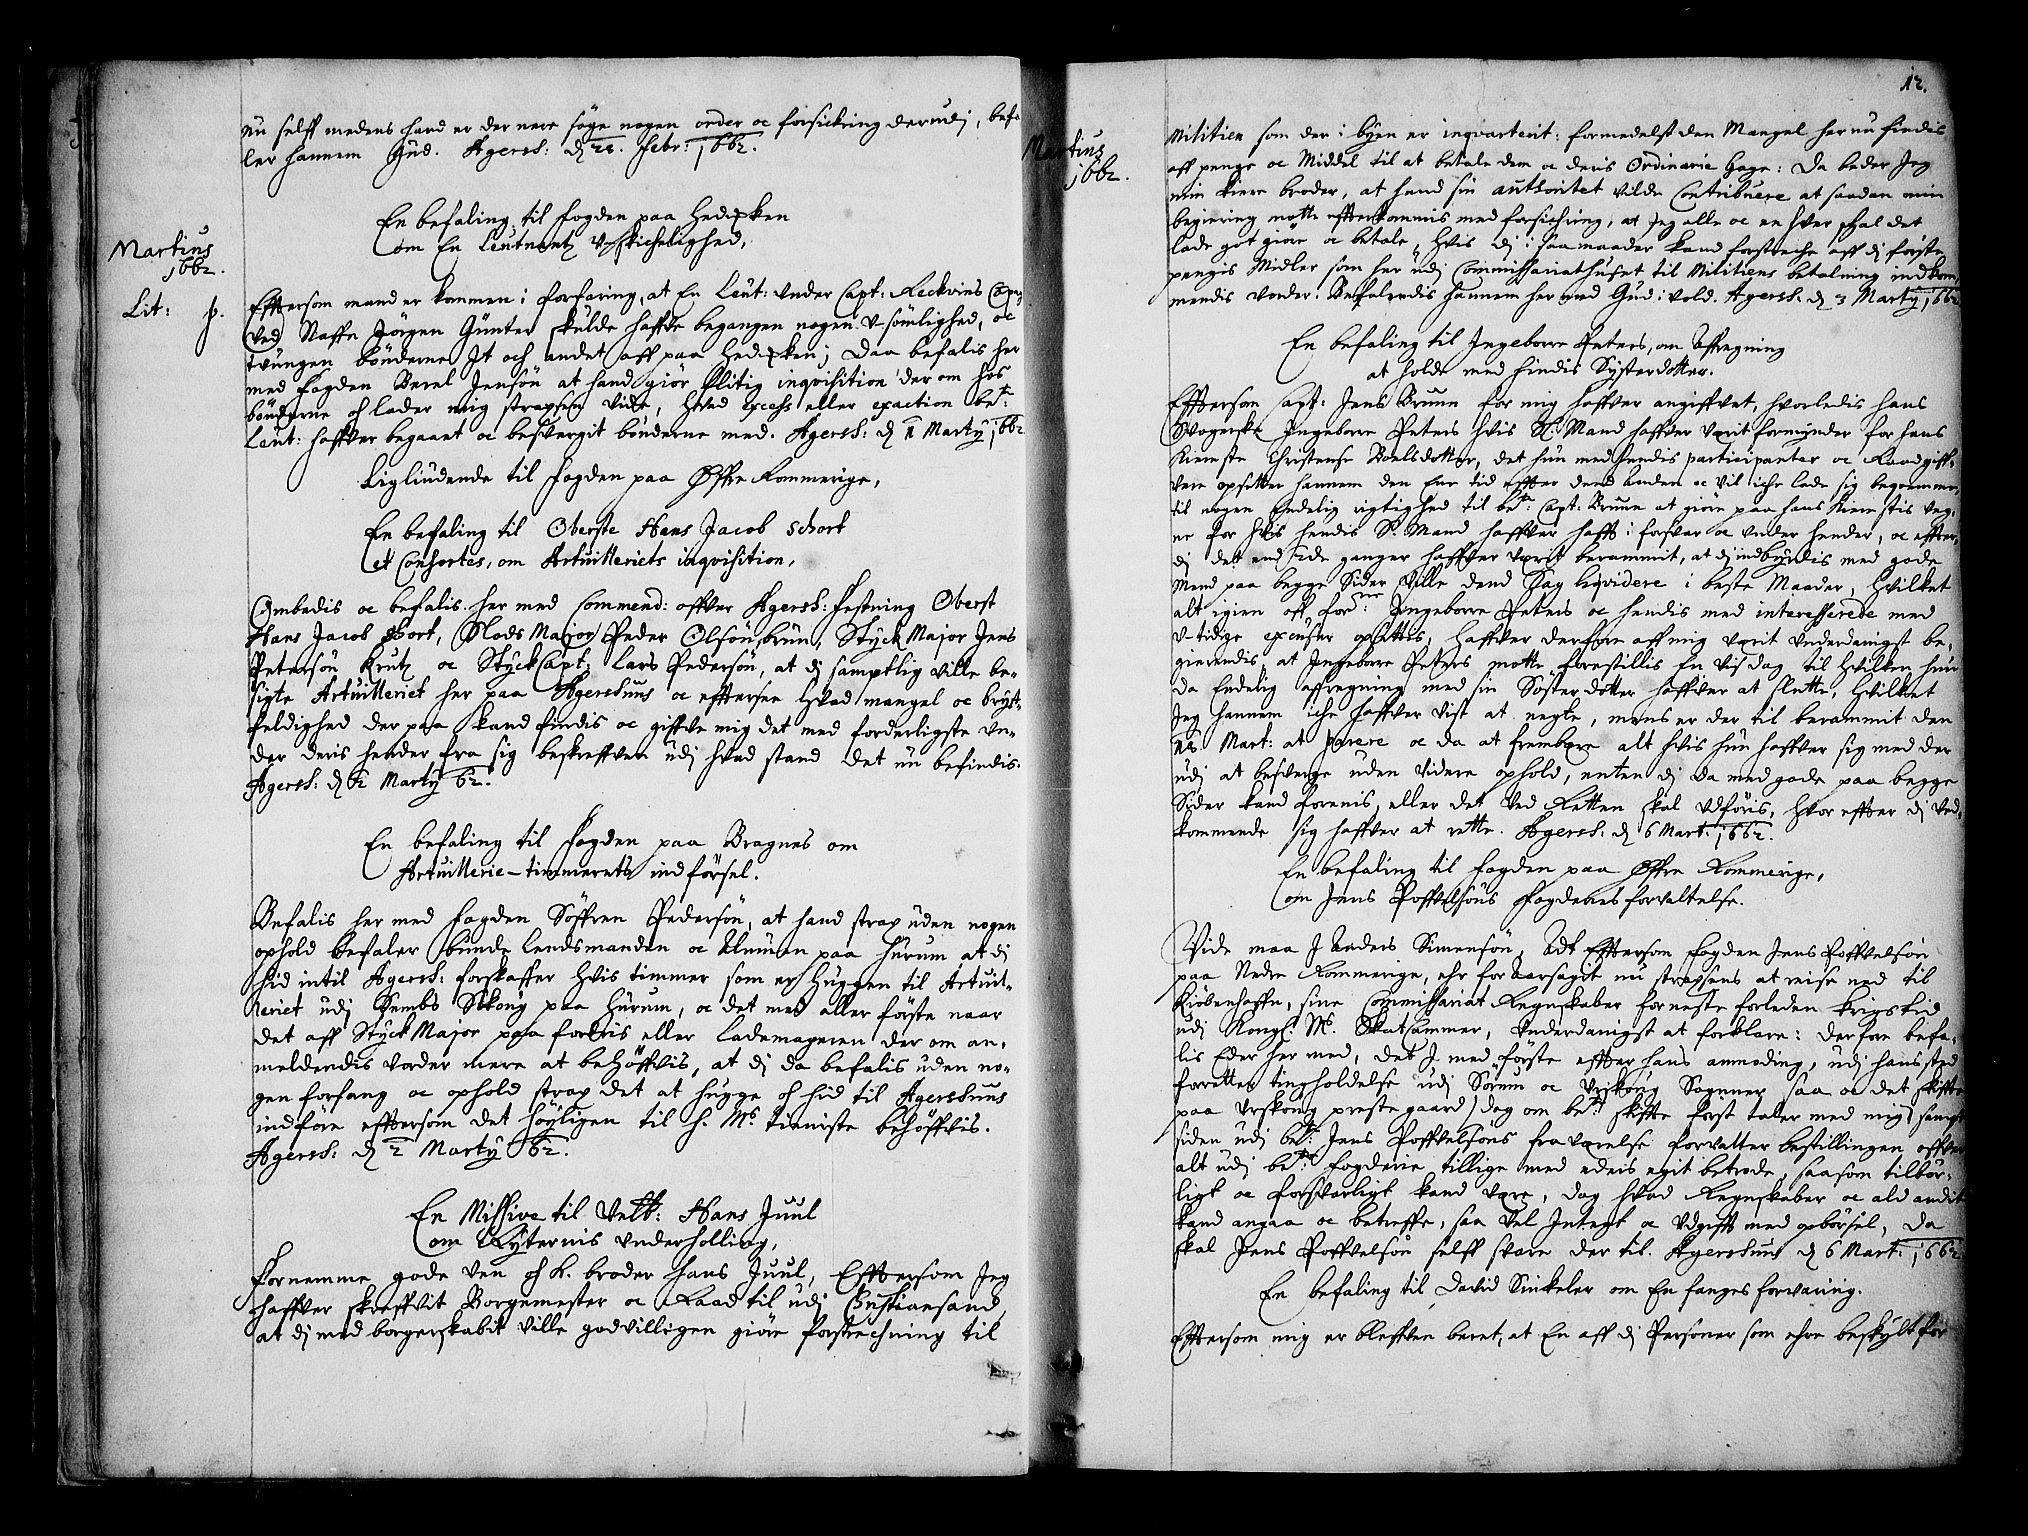 nu selff medens hand er der nere søge nogen order oc forsickring derudj, befa-
ler hannem Gud. Agersh: d 28. Febr: 1662.
En befaling til fogden paa Hedepken
om En Leutnantz Uskichelighed,
Martius
1662.
Lit: p.
Efftersom mand er kommen i forfaring, at En Leut: under Capt: Reckvins Comp
ved Naffn Jørgen Günter skulde haffve begangen nogen U-sømlighed, oc
tvungen bønderne It och andet aff paa Hedepken; Daa befalis her
med fogden Berel Jensøn at hand giør flitig inqvisition der om hos
bønderne oc lader mig strapsen vide, hvad excess eller exaction bete
Leut: haffver begaaet oc besvergit bønderne med. Agersh: d 1 Marty 1662
Liglüdende til fogden paa Øffre Rommerige,
En befaling til Oberste Hans Jacob Schort
et Consortes, om Artuilleriets inqvisition,
Ombedis oc befalis her med Commend: offver Agersh: Festning Oberst
Hans Jacob Schort, Slods Major Peder Olsøn brün, Stÿck Major Jens
Petersøn Krutz oc StÿckCapt: Lars Pedersøn, at dj samptlig ville be-
sigte Artuilleriet her paa Agershuus oc efftersee hvad mangel oc brÿst-
feldighed der paa kand findis oc giffve mig det med forderligste un-
der deris hender fra sig beskreffven udj hvad stand det nu befindis.
Agersh: d 2 Marty 62.
En befaling til fogden paa Bragnes om
Artuillerie-timmerets indførsel.
Befalis her med fogden Søffren Pedersøn, at hand strax uden nogen
ophold befaler bunde lendsmanden oc Almuen paa Hurum at dj
hid intil Agersh: forskaffer hvis timmer som er huggen til Artuil-
leriet udj Sembs Skong paa Hurum, oc det med aller første naar
det aff Stÿck Major paa fordris eller lademageren der om an-
meldendis vorder mere at behøffvis, at dj da befalis uden no-
gen forfang oc ophold strax det at hugge oc hid til Agershuus
indføre efftersom det høÿligen til h. Ms. tieniste behøffvis.
Agersh: d 2 Marty 62.
En Missive til Velb: Hans Juul
om Rÿternis underholling,
Fornemme gode ven oc k. broder Hans Juul, Efftersom Jeg
haffver skreffvit Borgemester oc Raad til udj Christiansand,
at dj med borgerskabit ville godvilligen giøre forstrechning til
12.
Martius
1662.
Militien som der i byen er inqvarterit: formedelst den Mangel her nu findis
aff penge oc Middel til at betale dem oc deris Ordinarie Gage: Da beder Jeg
min kiere broder, at hand sin authoritet vilde Contribuere at saadan min
begiering motte effterkommis med forsichring, at Jeg alle oc en hver skal det
lade got giøre oc betale, hvis dj i saamaader kand forstreche aff dj første
pengis Midler som her udj Commissariathuset til Militiens betalning indkom-
mendis vorder. Befalendis hannem her med Gud: vold. Agersh: d 3 Marty 1662
En befaling til Ingeborre Peters, om Affregning
at holde med hindis Sÿsterdotter.
Efftersom Capt: Jens Bruun for mig haffver angiffvet, hvorledis hans
Svogerske Ingeborre Peters hvis S. Mand haffver verit formynder for hans
Kiereste Christense Boelsdotter, det hun med hendis participanter oc Raadgiff-
vere opsetter hannem den Ene tid effter dend Anden oc vil iche lade sig beqvemme
til nogen Endelig rigtighed til bete: Capt: Bruun at giøre paa hans kierestis veg-
ne for hvis hendis S. Mand haffver hafft i forsvar oc under hender, oc effter-
dj det end fide ganger haffver verit berammit, at dj indbyrdis med gode
Mend paa begge Sider ville dend Sag liqvidere i beste Maader, hvilket
alt igien off forne: Ingeborre Peters oc hendis med interesserede med
U-tidige excuser opsettis, haffver derfore aff mig verit underdanigst be-
gierendis, at Ingeborre Peters motte forestillis En vis dag til hvilken hun
da Endelig affregning med sin Søsterdotter haffver at slutte, hvilket
Jeg hannem iche haffver vist at negte, mens er der til berammit den
12 Mart: at parere oc da at frembære alt hvis hun haffver sig med der
udj at besverge uden videre ophold, enten dj da med gode paa begge
Sider kand forenis, eller det ved Retten skal udføris, hvor effter dj ved-
kommende sig haffver at rette. Agersh: d 6 Mart: 1662.
En befaling til fogden paa Øffre Rommerige,
om Jens Poffvelsøns Fogdenes forvaltelse.
Vide maa I Anders Simensøn, Adt Efftersom fogden Jens Poffvelsøn
paa Nedre Rommerige, ehr foraarsagit nu strapsens at reise ned til
Kiøbenhaffn, sine Commissariat Regnskaber for neste forleden krigstid
udj Kongl: M. Skatkammer, underdanigst at forklare: derfore befa-
lis Eder her med, det I med første effter hans anmoding, udj hans sted
forretter tingholdelse udj Sørum oc Urskong Sogner saa oc det skiffte
paa Urskong prestegaard, dog om bete: skiffte først taler med mig, sampt
siden udj bete: Jens Poffvelsøns fraverelse forretter bestillingen offver
alt udj bete: fogderie tillige med eders egit betrode, saasom tilbør-
ligt oc forsvarligt kand vere, dog hvad Regnskaber oc ald andit
kand angaa oc betreffe, saa vel Integt oc Udgifft med opbørsel, da
skal Jens Poffvelsøn selff svare der til. Agershuus d 6 Mart: 1662
En befaling til David Sinkeler om En fanges forvaring.
Efftersom mig er bleffven beret, at En aff dj Personer som ehre beskylt for